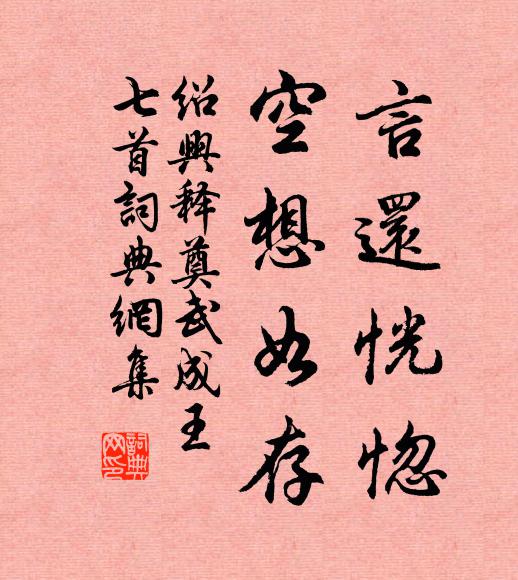 言還恍惚
空想如存
紹興释奠武成王
七首詞典網集
詞典
网印